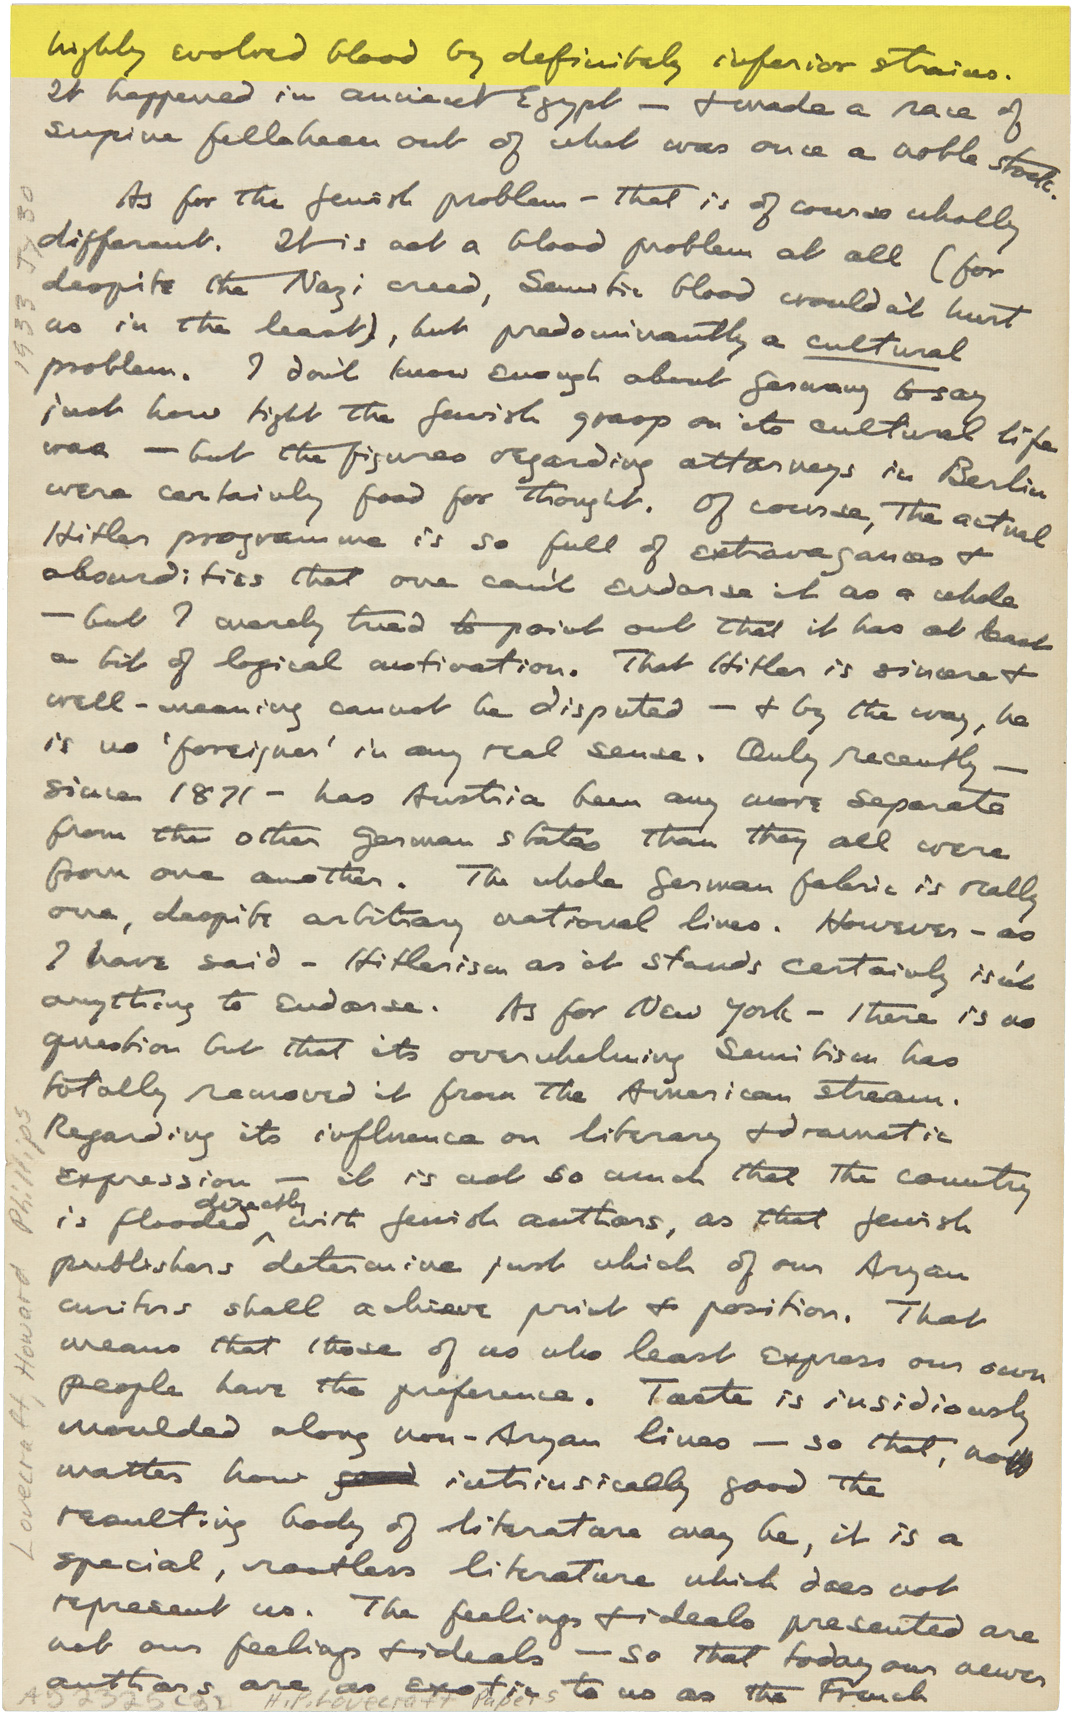 highly evolved blood by definitely inferior strains.
It happened in ancient Egypt — & made a race of
supine fellaheen out of what was once a noble stock.
As for the Jewish problem — that is of course wholly
different. It is not a blood problem at all (for
despite the Nazi creed, Semitic blood wouldn't hurt
us in the least), but predominantly a cultural
problem. I don't know enough about Germany to say
just how tight the Jewish grasp on its cultural life
was — but the figures regarding attorneys in Berlin
were certainly food for thought. Of course, the actual
Hitler programme is so full of extravagances &
absurdities that one can't endorse it as a whole
— but I merely tried to point out that it has at least
a bit of logical motivation. That Hitler is sincere &
well-meaning cannot be disputed — & by the way, he
is no 'foreigner' in any real sense. Only recently —
since 1871 — has Austria been any more separate
from the other German states than they all were
from one another. The whole German fabric is really
one, despite arbitrary national lines. However — as
I have said — Hitlerism as it stands certainly isn't
anything to endorse. As for New York — there is no
question but that its overwhelming Semitism has
totally removed it from the American stream.
Regarding its influence on literary & dramatic
expression — it is not so much that the country
is flooded directly with Jewish authors, as that Jewish
publishers determine just which of our Aryan
writers shall achieve print & position. That
means that those of us who least express our own
people have the preference. Taste is insidiously
moulded along non-Aryan lines — so that, no
matter how intrinsically good the
resulting body of literature may be, it is a
special, rootless literature which does not
represent us. The feelings & ideals presented are
not our feelings & ideals — so that today our newer
authors are as exotic to us as the French
1933 Jy 30
Lovecraft, Howard Phillips
H.P. Lovecraft Papers